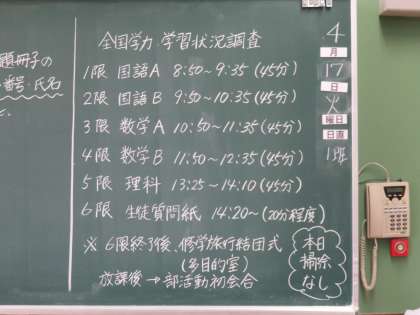 題冊子の
番号・氏名
全国学力・学習状況調査
1限 国語A 8:50~9:35(45分)
2限 国語B 9:50~10:35(45分)
3限 数学A 10:50~11:35(45分)
4限 数学B 11:50~12:35(45分)
5限 理科 13:25~14:10(45分)
6限 生徒質問紙 14:20~(20分程度)
※ 6限終了後、修学旅行結団式
(多目的室)
放課後→部活動初会合
本日
掃除
なし
4
月
17
日
火
曜日
日直
1班